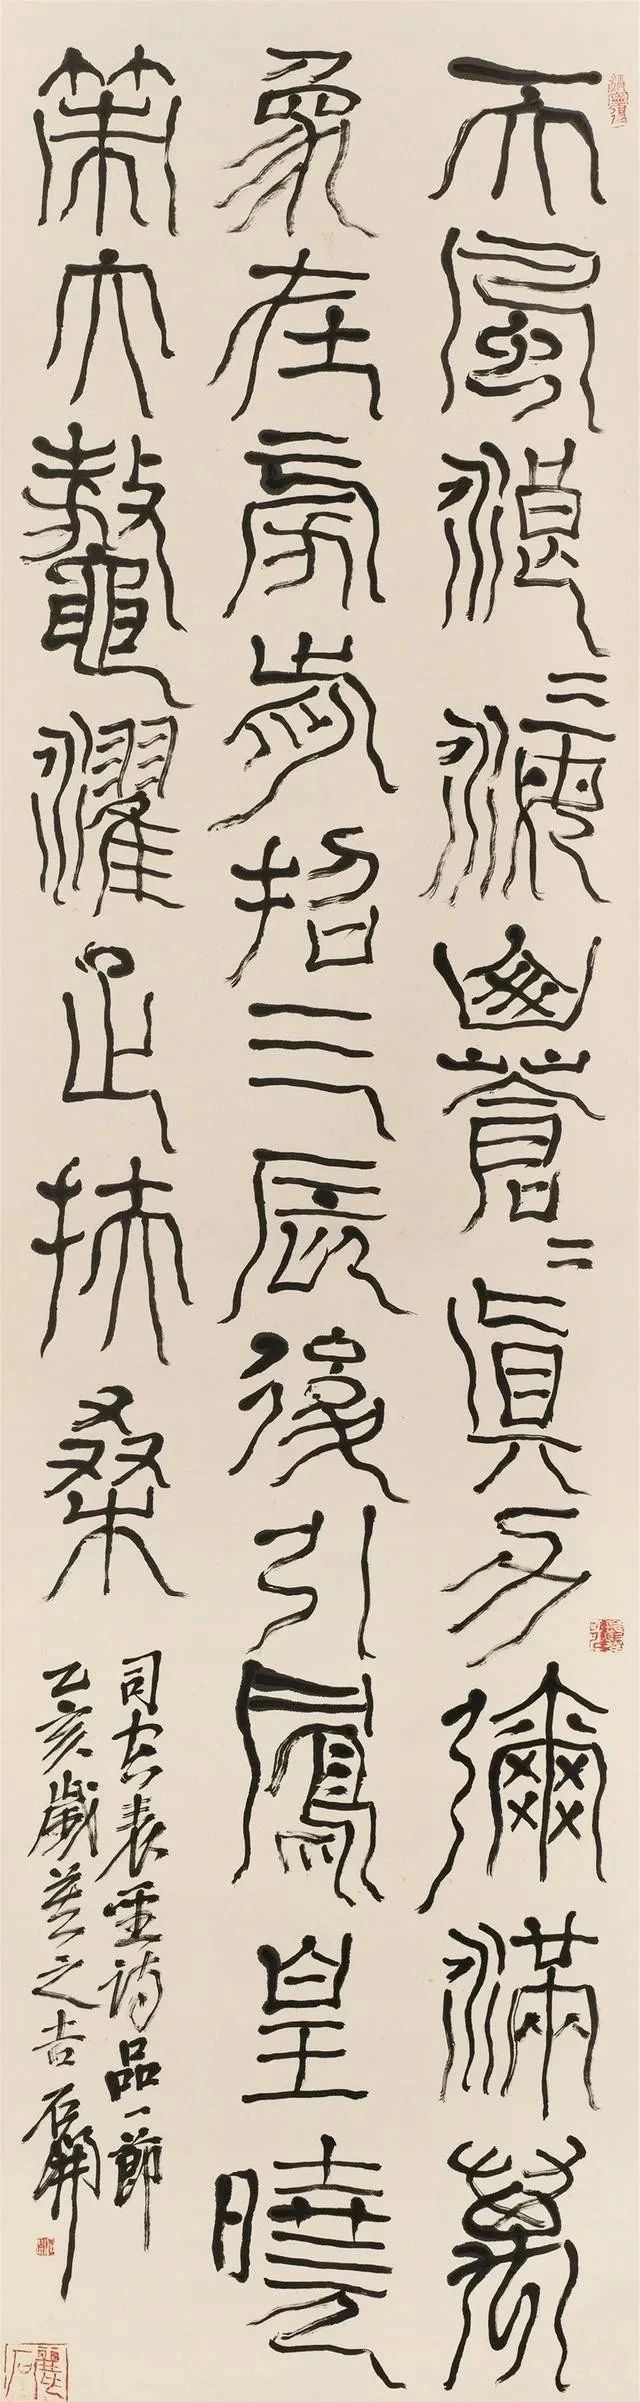 天風浪〻海山蒼〻真力彌滿萬
象在旁前招三辰後引鳳皇曉
策六鼇濯足扶桑
司空表聖詩品一節
乙亥歲莫之吉石開